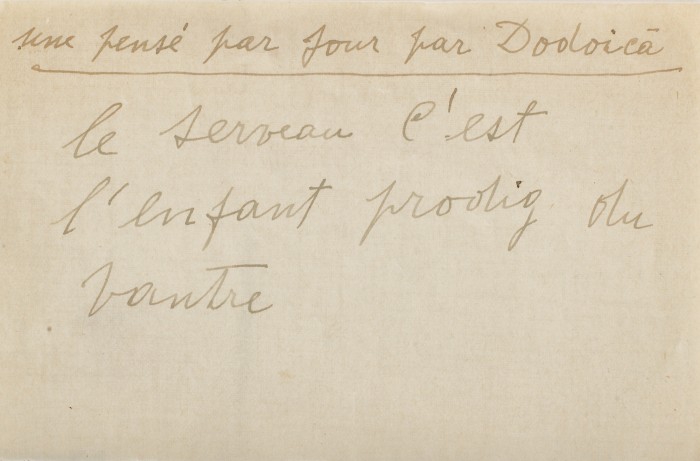 une pensé par jour par Dodoicã
le serveau C'est
l'enfant prodig du
vantre